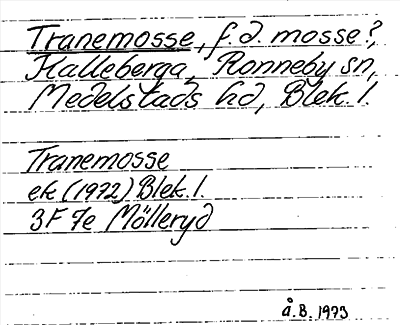 Tranemosse, f.d. mosse?,
Halleberga, Ronneby sn,
Medelstads hd, Blek. l.
Tranemosse
ek (1972) Blek. l.
3F 7e Mölleryd
Å.B. 1973